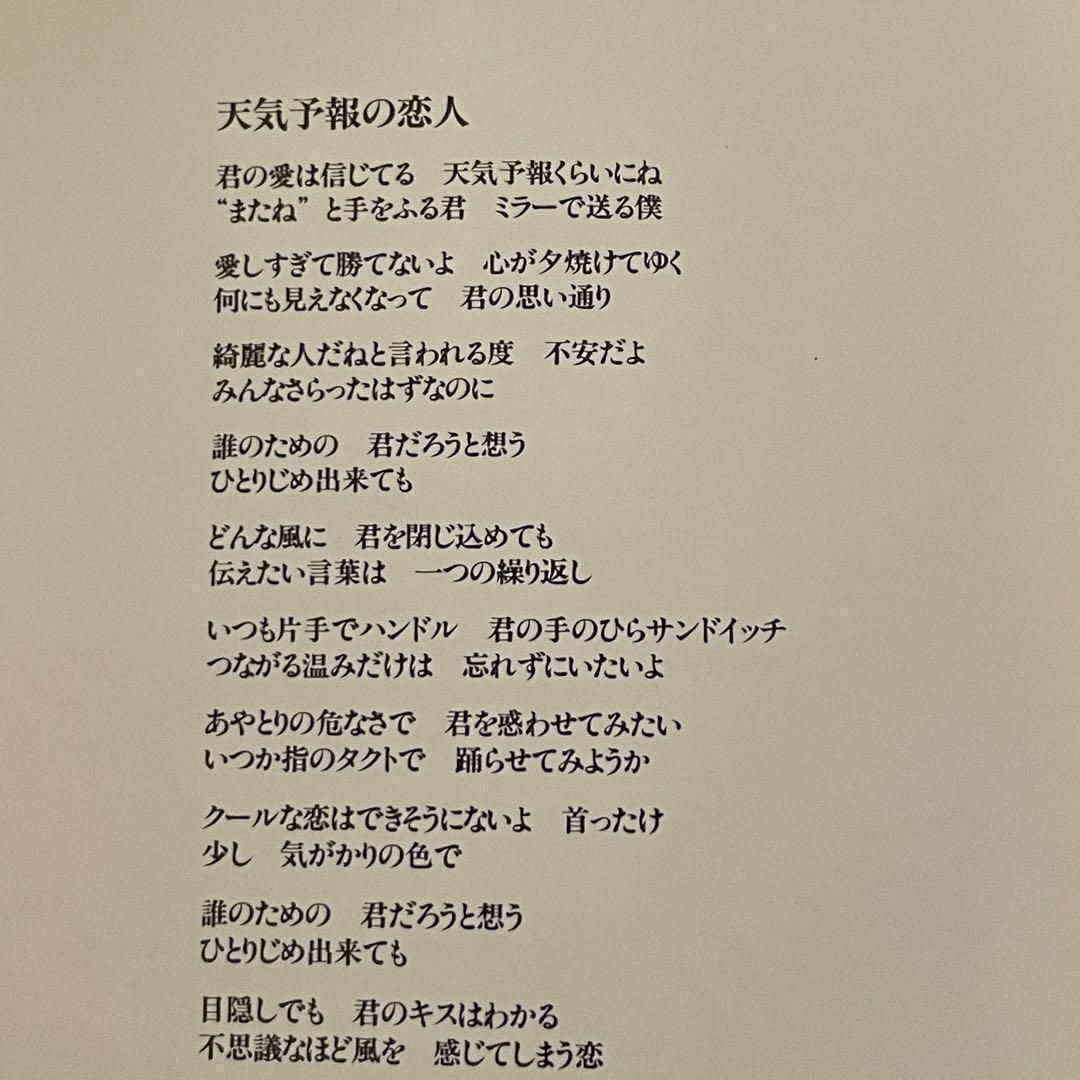 天気予報の恋人
君の愛は信じてる　天気予報くらいにね
“またね”と手をふる君　ミラーで送る僕
愛しすぎて勝てないよ　心が夕焼けてゆく
何にも見えなくなって　君の思い通り
綺麗な人だねと言われる度　不安だよ
みんなさらったはずなのに
誰のための　君だろうと想う
ひとりじめ出来ても
どんな風に　君を閉じ込めても
伝えたい言葉は　一つの繰り返し
いつも片手でハンドル　君の手のひらサンドイッチ
つながる温みだけは　忘れずにいたいよ
あやとりの危なさで　君を惑わせてみたい
いつか指のタクトで　踊らせてみようか
クールな恋はできそうにないよ　首ったけ
少し　気がかりの色で
誰のための　君だろうと想う
ひとりじめ出来ても
目隠しでも　君のキスはわかる
不思議なほど風を　感じてしまう恋